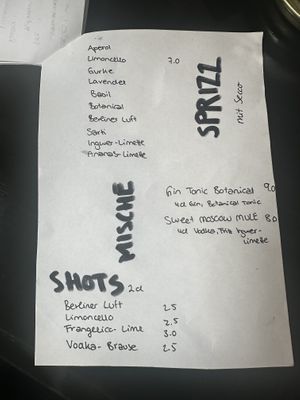 Aperol
Limoncello 7.0
Gurke
Lavendel
Basil
Botanical
Berliner Luft
Sarti
Ingwer-Limette
Ananas-Limette
SPRIZZ
mit Secco
MISCHE
Gin Tonic Botanical 9.0
4cl Gin, Botanical Tonic
Sweet Moscow MULE 8.0
4cl Vodka, Ingwer-
Limette
SHOTS 2cl
Berliner Luft 2.5
Limoncello 2.5
Frangelico-Lime 3.0
Vodka-Brause 2.5